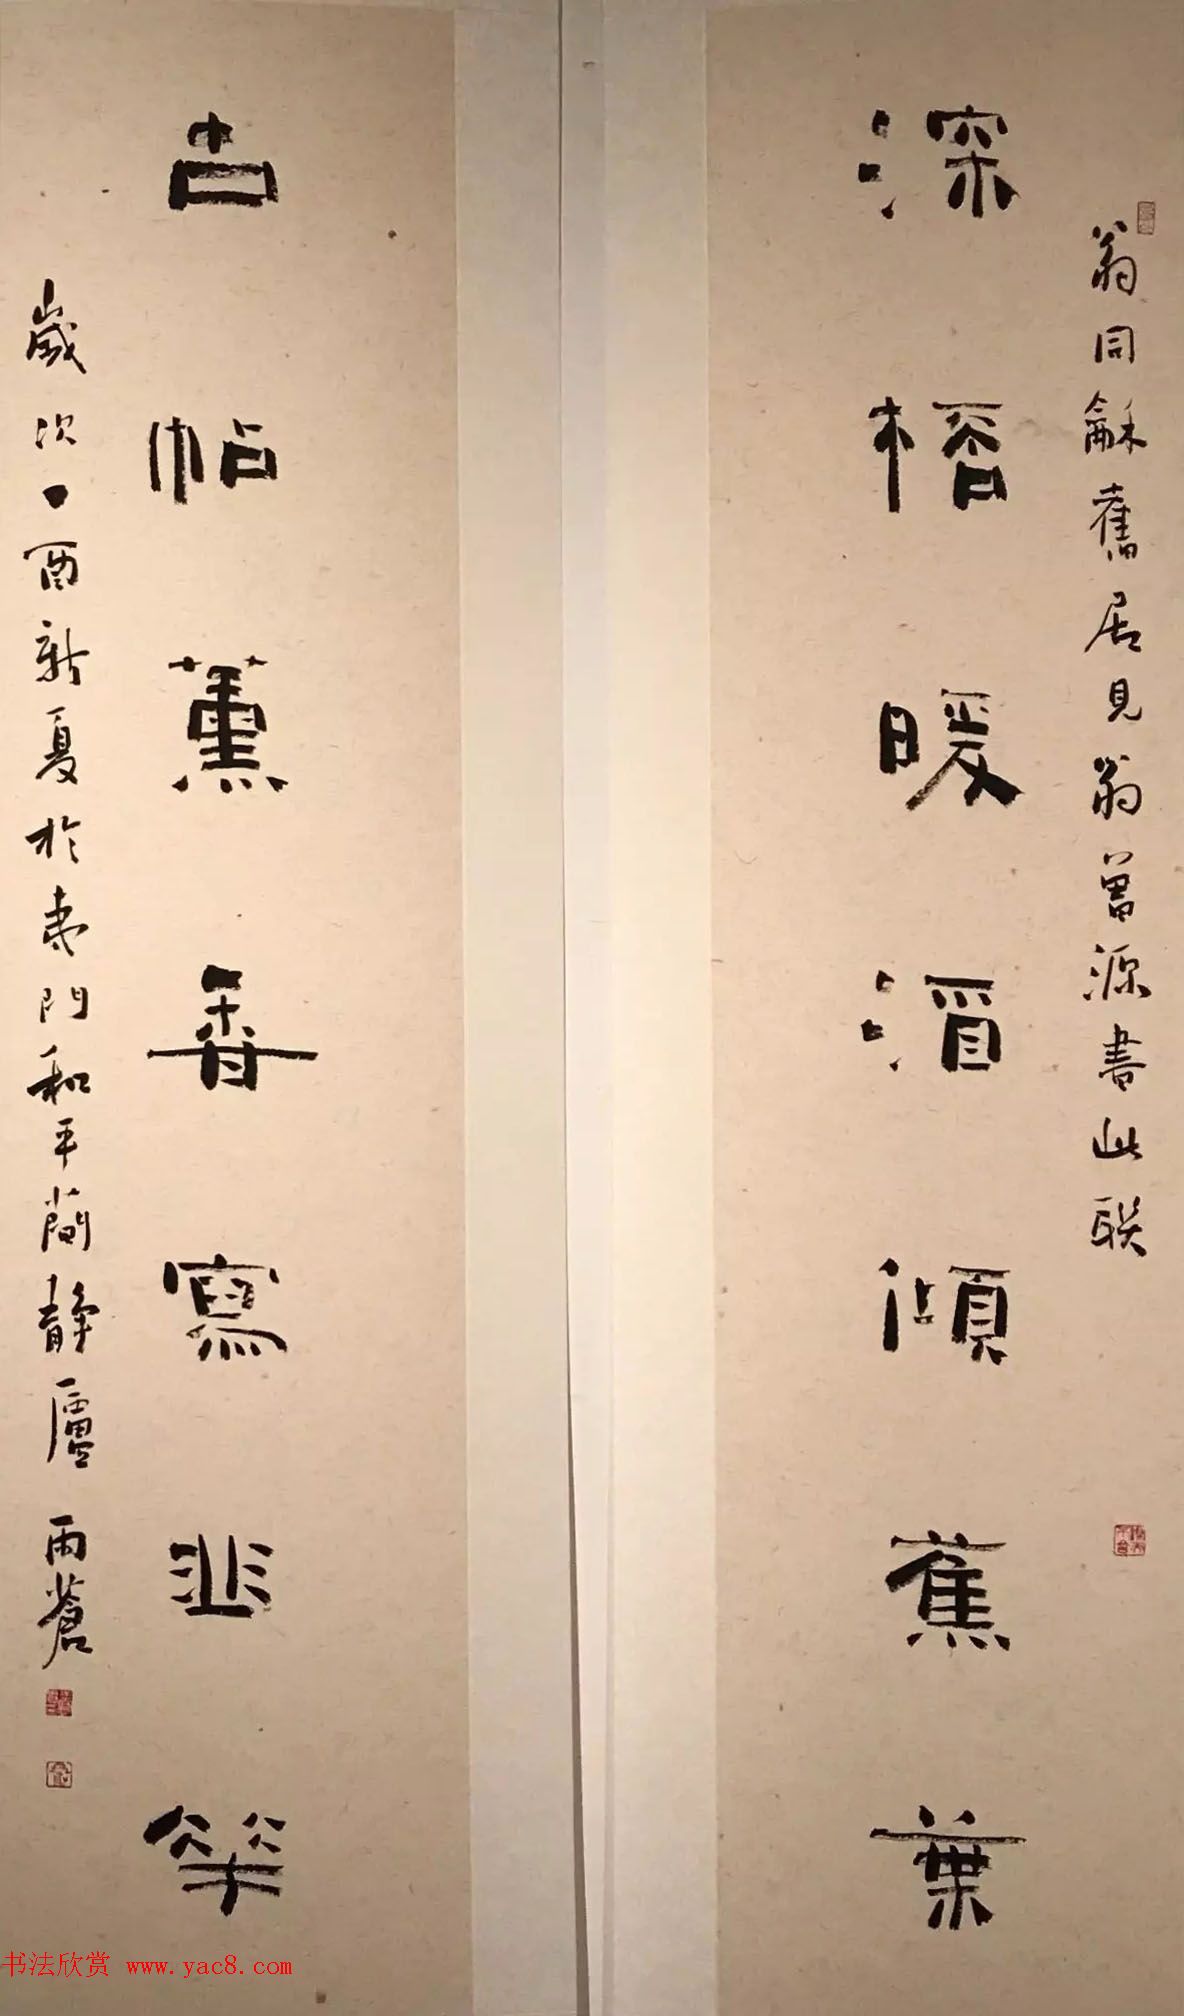 翁同龢舊居見翁曾源書此联
深桮暖酒傾蕉葉
古帖薰香寫韭華
歲次丁酉新夏於婁門和平簡靜廬 雨蒼
书法欣赏 www.yac8.com